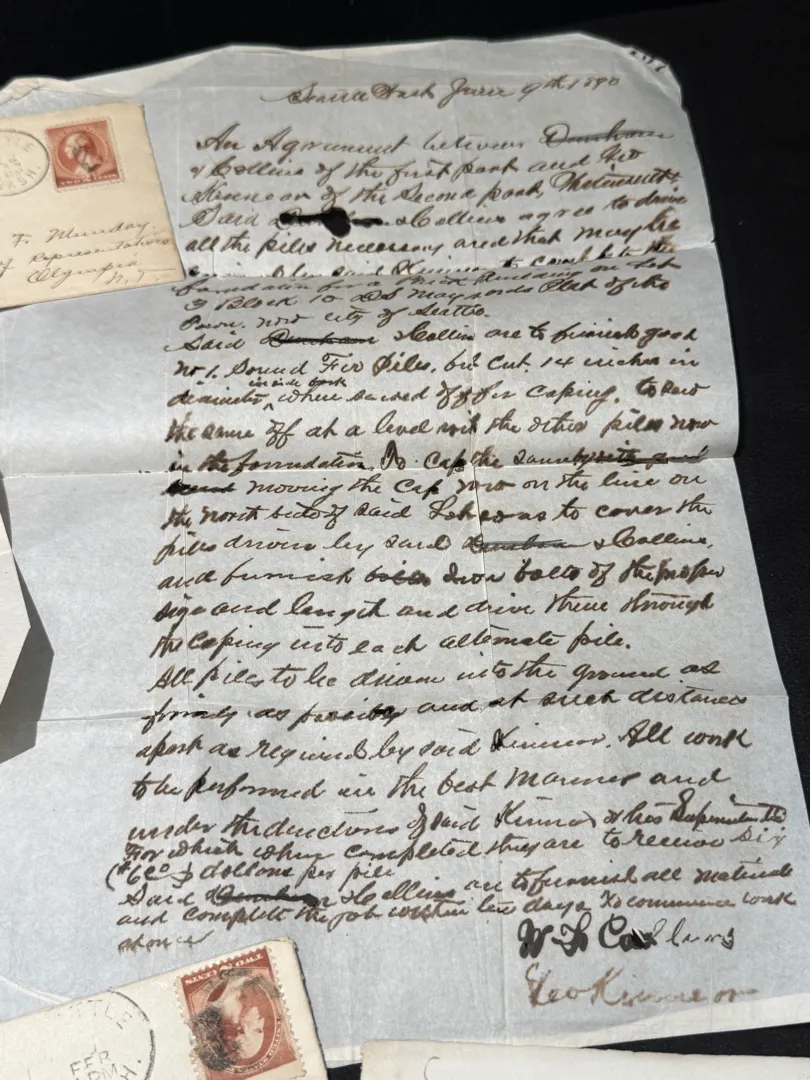 Seattle Wash June 9th 1890
An Agreement between Dunham
& Collins of the first part and Geo
Kinnear of the Second part, That
Said & Collins agree to drive
all the piles necessary and that may be
said Kinnear to complete the
foundation for a Brick Building on Lot
3 Block 10 D S Maynards Plat of the
Town, now City of Seattle.
Said Dunham & Collins are to furnish good
No 1. Sound Fir Piles, but cut. 14 inches in
diameter, inside bark where sawed off for caping, to saw
the same off at a level with the other piles now
in the foundation. To Cap the
moving the Cap now on the line on
the north side of said Lot so as to cover the
piles driven by said Dunham & Collins,
and furnish bolts Iron bolts of the proper
size and length and drive them through
the caping into each alternate pile.
All piles to be driven into the ground as
firmly as possible and at such distances
apart as required by said Kinnear. All work
to be performed in the best Manner and
under the directions of said Kinnear or his Superintendent
For which when completed they are to receive Six
($6.00) dollars per pile
Said Dunham & Collins are to furnish all materials
and complete the job within ten days & to commence work
at once
Collins
Geo Kinnear
F. Munday
of Representatives
Olympia
W.T.
WASH.
TWO CENTS
FEB
PM